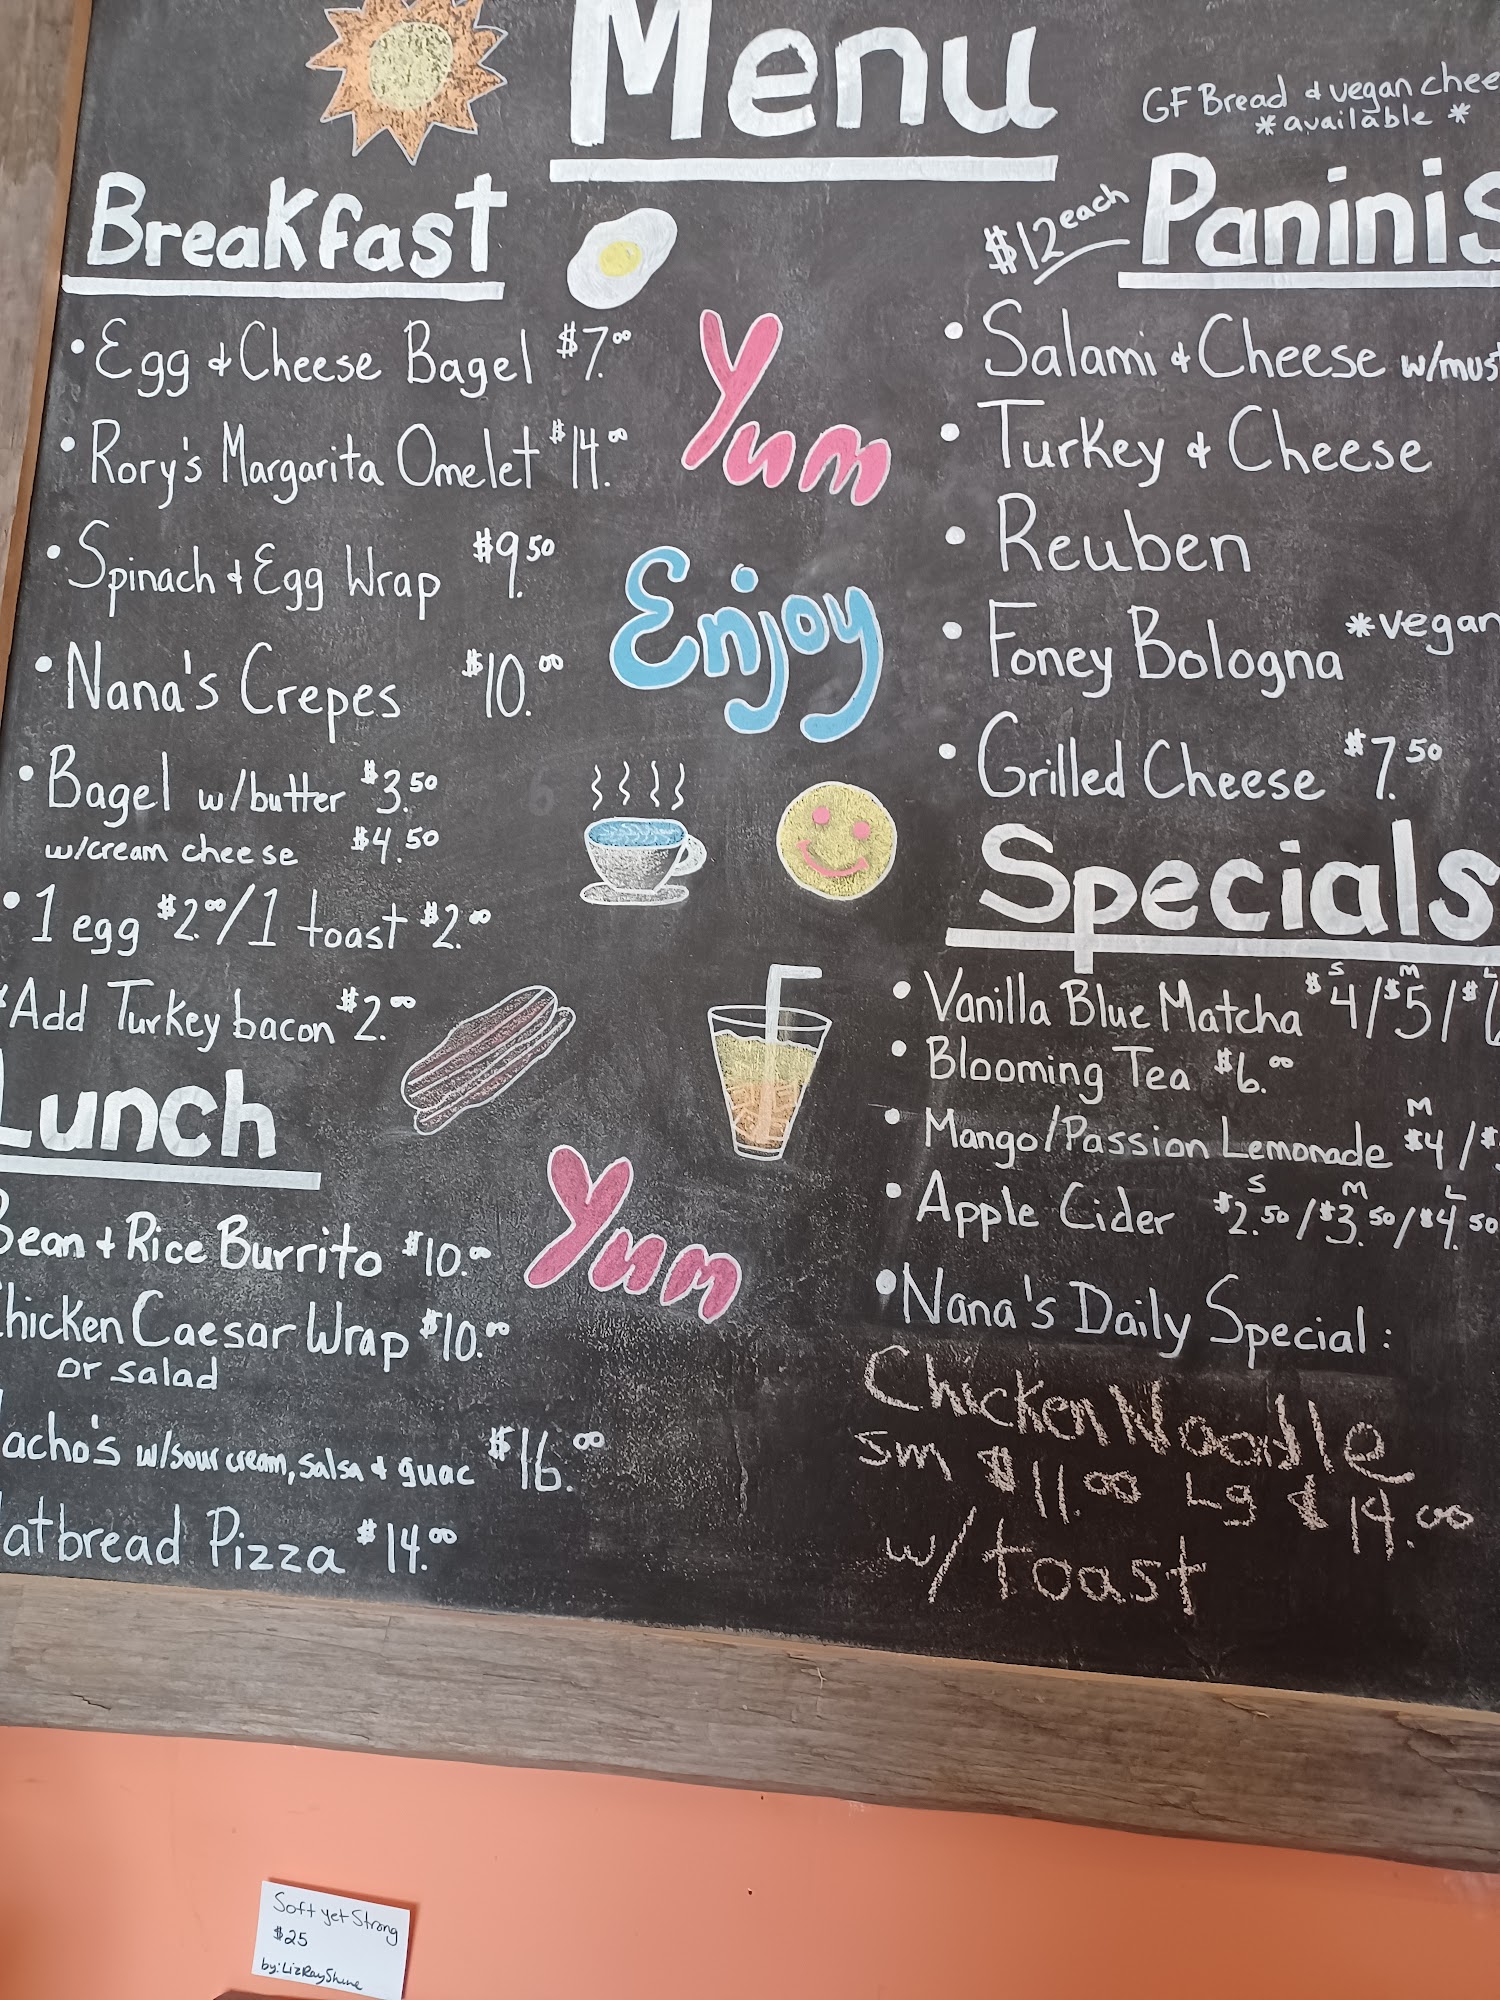 Menu
GF Bread & vegan chee
* available *
Breakfast
• Egg & Cheese Bagel $7.00
• Rory's Margarita Omelet $14.00
• Spinach & Egg Wrap $9.50
• Nana's Crepes $10.00
• Bagel w/butter $3.50
w/cream cheese $4.50
• 1 egg $2.00/1 toast $2.00
*Add Turkey bacon $2.00
Lunch
Bean + Rice Burrito $10.00
Chicken Caesar Wrap $10.00
or salad
acho's w/sour cream, salsa & guac $16.00
atbread Pizza $14.00
Yum
Enjoy
Yum
$12 each Paninis
• Salami & Cheese w/must
• Turkey & Cheese
• Reuben
• Foney Bologna *vegan
• Grilled Cheese $7.50
Specials
S M L
• Vanilla Blue Matcha $4/$5/$6
• Blooming Tea $6.00
M
• Mango/Passion Lemonade $4/$
S M L
• Apple Cider $2.50/$3.50/$4.50
• Nana's Daily Special:
Chicken Noodle
sm $11.00 Lg $14.00
w/toast
Soft yet Strong
$25
by: LizRayShine